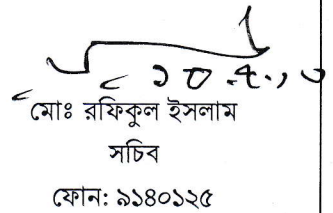 মোঃ রফিকুল ইসলাম
সচিব
ফোন: ৯১৪০১২৫